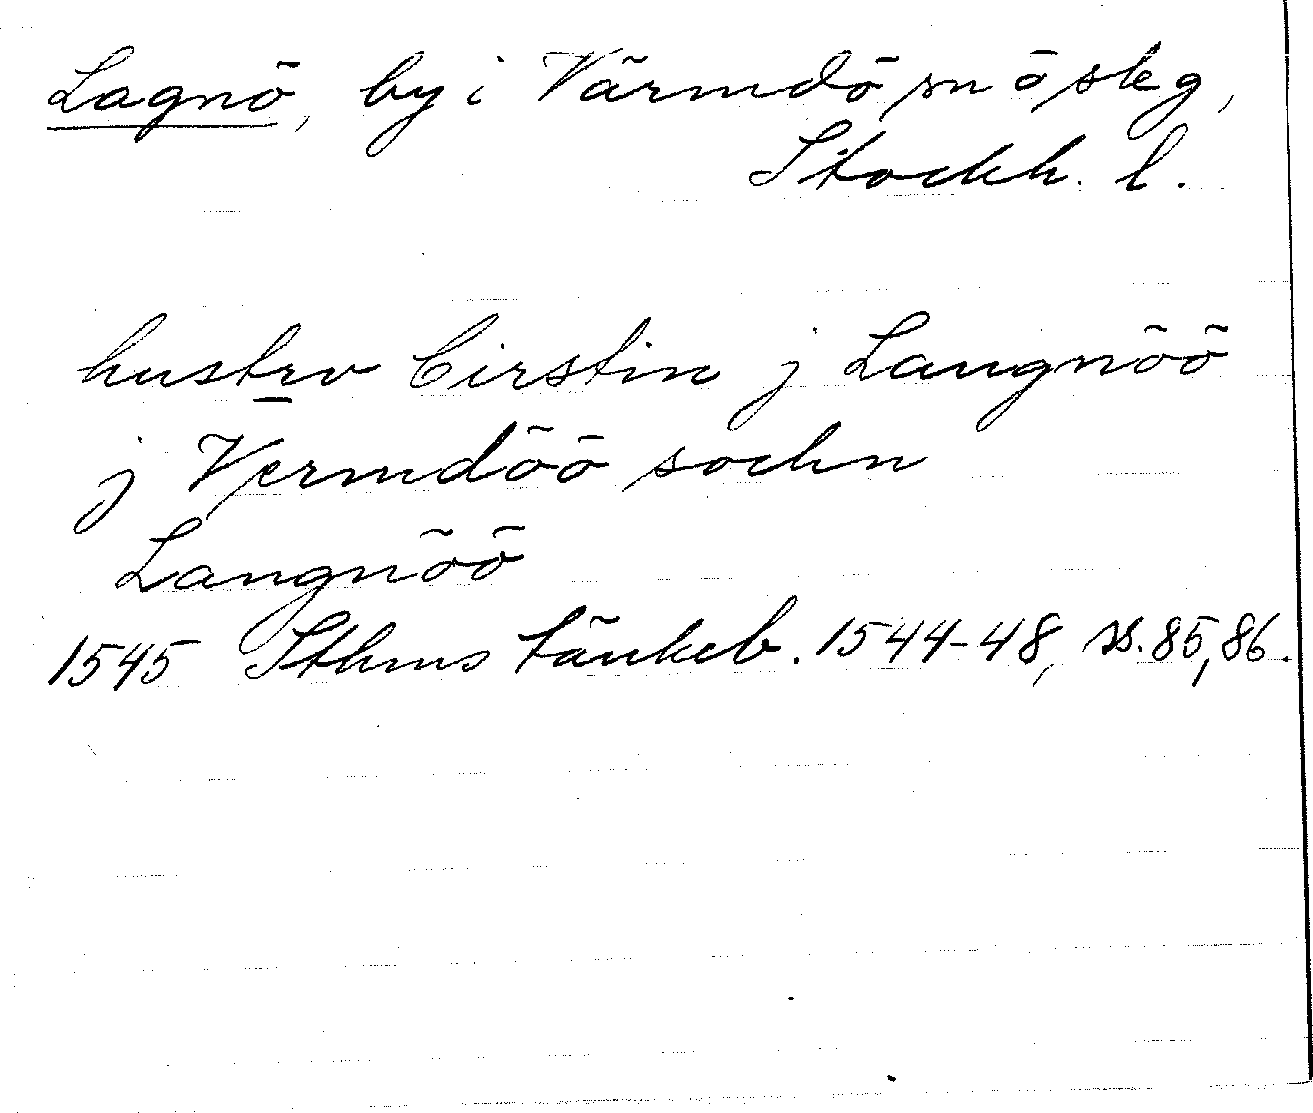 Lagnö, by i Värmdö sn o skg,
Stockh. l.
hustrv Cirstin j Langnöö
j Vermdöö sochn
Langnöö
1545 Sthms tänkeb. 1544-48, ss. 85, 86.